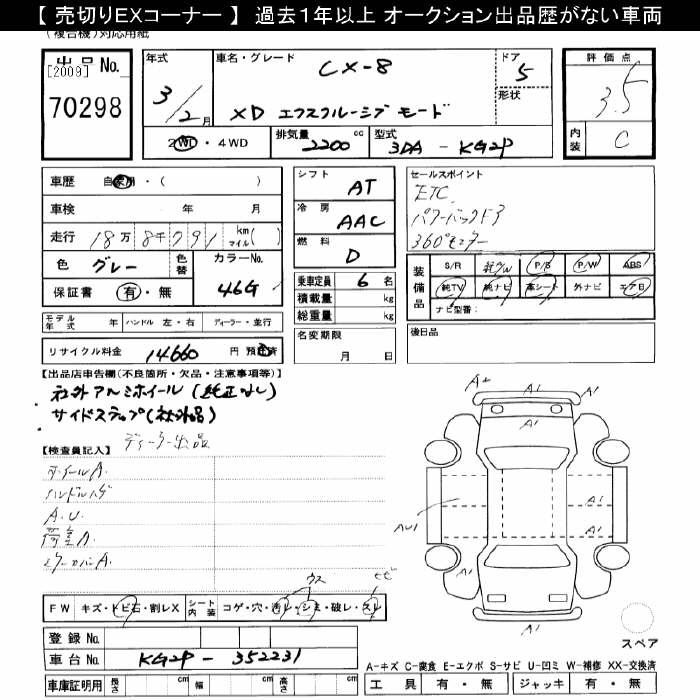 【 売切りEXコーナー 】 過去1年以上 オークション出品歴がない車両
(複合機)対応用紙
出品 No.
[2009]
70298
年式
3/2月
車名・グレード
CX-8
XD エクスクルーシブモード
ドア
5
形状
評価点
3.5
内装
C
2WD・4WD
排気量
2200 cc
型式
3DA - KG2P
車歴 自家用・( )
車検 年 月
走行 18万8千791 km マイル( )
色
グレー
色替
カラーNo.
46G
保証書 有・無
シフト
AT
冷房
AAC
燃料
D
乗車定員 6 名
積載量 kg
総重量 kg
名変期限
月 日
セールスポイント
ETC
パワーバックドア
360°モニター
装備品
S/R 純AW P/S P/W ABS
純TV 純ナビ 革シート 外ナビ エアB
ナビ型番:
後日品
モデル年式 年 ハンドル 左・右 ディーラー・並行
リサイクル料金 14660 円 預託済
【出品店申告欄(不良箇所・欠品・注意事項等)】
社外アルミホイール(純正なし)
サイドステップ(社外品)
【検査員記入】 ディーラー出品
ホイールA.
ハンドルハゲ
A.U.
荷室A
ミラーカバーA.
A2
A1
A1
A1
A1
A1
AU1
A1
A1
ウス
FW キズ・トビ石・割レX シート内装 コゲ・穴・汚レ・シミ・破レ・スレ
登録 No.
車台 No. KG2P - 352231
車庫証明用 長さ cm 幅 cm 高さ cm
スペア
A-キズ C-腐食 E-エクボ S-サビ U-凹ミ W-補修 XX-交換済
工具 有・無 ジャッキ 有・無